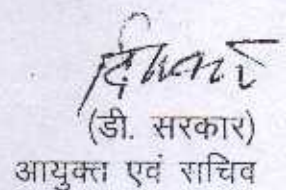 (डी. सरकार)
आयुक्त एवं सचिव